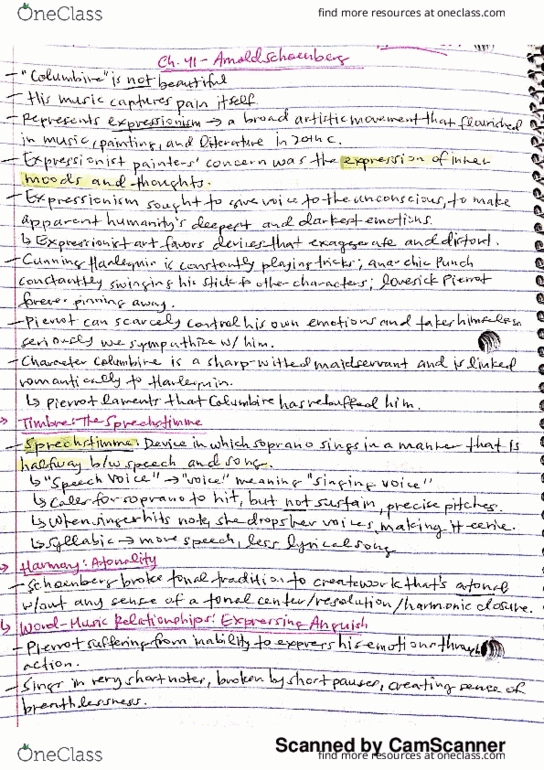 OneClass
find more resources at oneclass.com
Ch. 41 - Arnold Schoenberg
- "Columbine" is not beautiful
- His music captures pain itself
- Represents expressionism → a broad artistic movement that flourished
in music, painting, and literature in 20th c.
- Expressionist painters' concern was the expression of inner
moods and thoughts.
- Expressionism sought to give voice to the unconscious, to make
apparent humanity's deepest and darkest emotions.
↳ Expressionist art favors devices that exaggerate and distort.
- Cunning Harlequin is constantly playing tricks; anarchic Punch
constantly swinging his stick to other characters; lovesick Pierrot
forever pinning away.
- Pierrot can scarcely control his own emotions and takes himself so
seriously we sympathize w/ him.
- Character Columbine is a sharp-witted maidservant and is linked
romantically to Harlequin.
↳ Pierrot laments that Columbine has rebuffed him.
Timbre: The Sprechstimme
- Sprechstimme: Device in which soprano sings in a manner that is
halfway b/w speech and song.
↳ "Speech voice" → "voice" meaning "singing voice"
↳ Calls for soprano to hit, but not sustain, precise pitches.
↳ When singer hits note, she drops her voices, making it eerie.
↳ Syllabic → more speech, less lyrical song
Harmony: Atonality
- Schoenberg broke tonal tradition to create work that's atonal
w/out any sense of a tonal center/resolution/harmonic closure.
Word-Music Relationships: Expressing Anguish
- Pierrot suffering from inability to express his emotions through
action.
- Sings in very short notes, broken by short pauses, creating sense of
breathlessness.
Scanned by CamScanner
OneClass
find more resources at oneclass.com